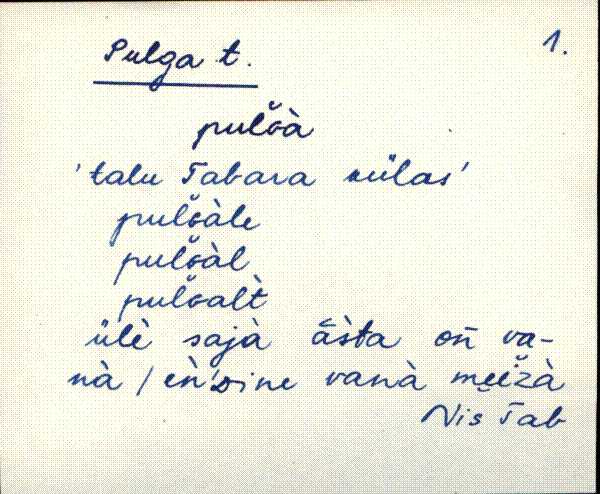 Pulga t. 1.
pulɢ̆à
'talu Tabara külas'
pulɢ̆àle
pulɢ̆àl
pulɢ̆alt̀
ülè sajà āsta on̄ va-
nà / èn'ᴅine vanà
Nis Tab